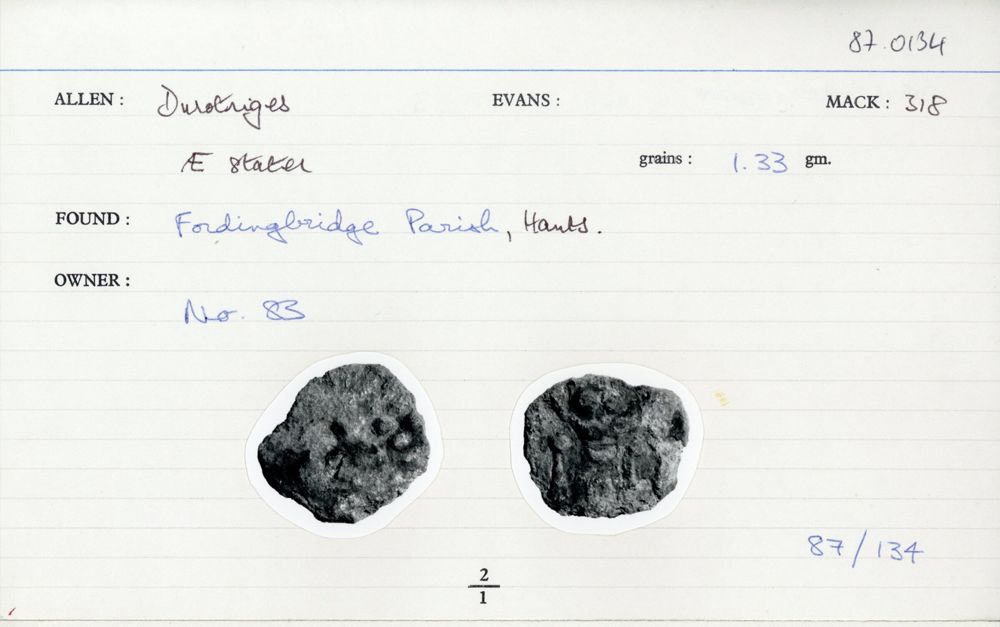 87.0134
ALLEN : Durotriges EVANS : MACK : 318
Æ stater grains : 1.33 gm.
FOUND : Fordingbridge Parish, Hants.
OWNER :
No. 83
87/134
2
1